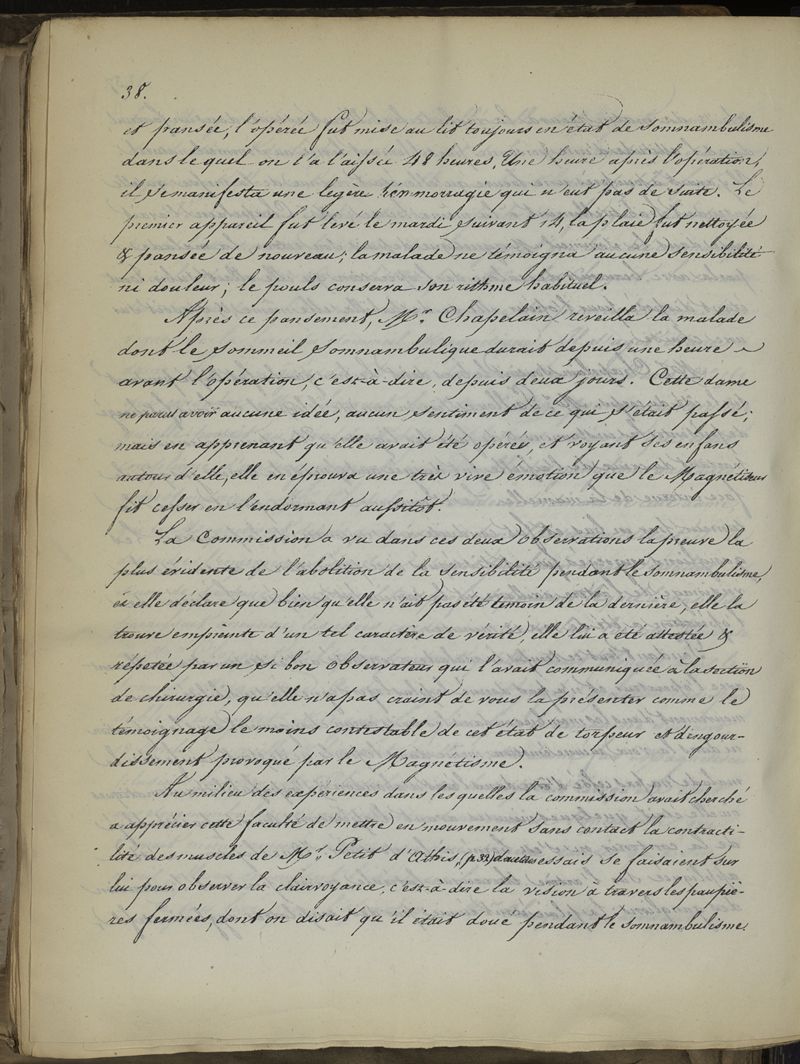 38.
et pansée, l'opérée fut mise au lit toujours en état de somnambulisme
dans le quel on l'a l'aissée 48 heures. Une heure après l'opération,
il se manifesta une legère hémorragie qui n'eut pas de suite. Le
premier appareil fut levé le mardi suivant 14, la plaie fut nettoyée
& pansée de nouveau; la malade ne témoigna aucune sensibilité
ni douleur; le pouls conserva son rithme habituel.
Après ce pansement, Mr. Chapelain reveilla la malade
dont le sommeil somnambulique durait depuis une heure
avant l'opération, c'est-à-dire, depuis deux jours. Cette dame
ne parut avoir aucune idée, aucun sentiment de ce qui s'était passé;
mais en apprenant qu'elle avait été opérée, et voyant ses enfans
autour d'elle, elle en éprouva une très vive émotion que le Magnétiseur
fit cesser en l'endormant aussitôt.
La Commission a vu dans ces deux observations la preuve la
plus évidente de l'abolition de la sensibilité pendant le somnambulisme,
et elle déclare que bien qu'elle n'ait pas été temoin de la dernière, elle la
trouve empreinte d'un tel caractère de vérité, elle lui a été attestée &
répetée par un si bon observateur qui l'avait communiquée à la section
de chirurgie, qu'elle n'a pas craint de vous la présenter comme le
témoignage le moins contestable de cet état de torpeur et d'engour-
dissement provoqué par le Magnétisme.
Au milieu des expériences dans les quelles la commission avait cherché
a apprécier cette faculté de mettre en mouvement sans contact la contracti-
lité des muscles de Mr. Petit d'Athis, (p. 32) d'autres essais se faisaient sur
lui pour observer la clairvoyance, c'est-à-dire la vision à travers les paupiè-
res fermées, dont on disait qu'il était doué pendant le somnambulisme.